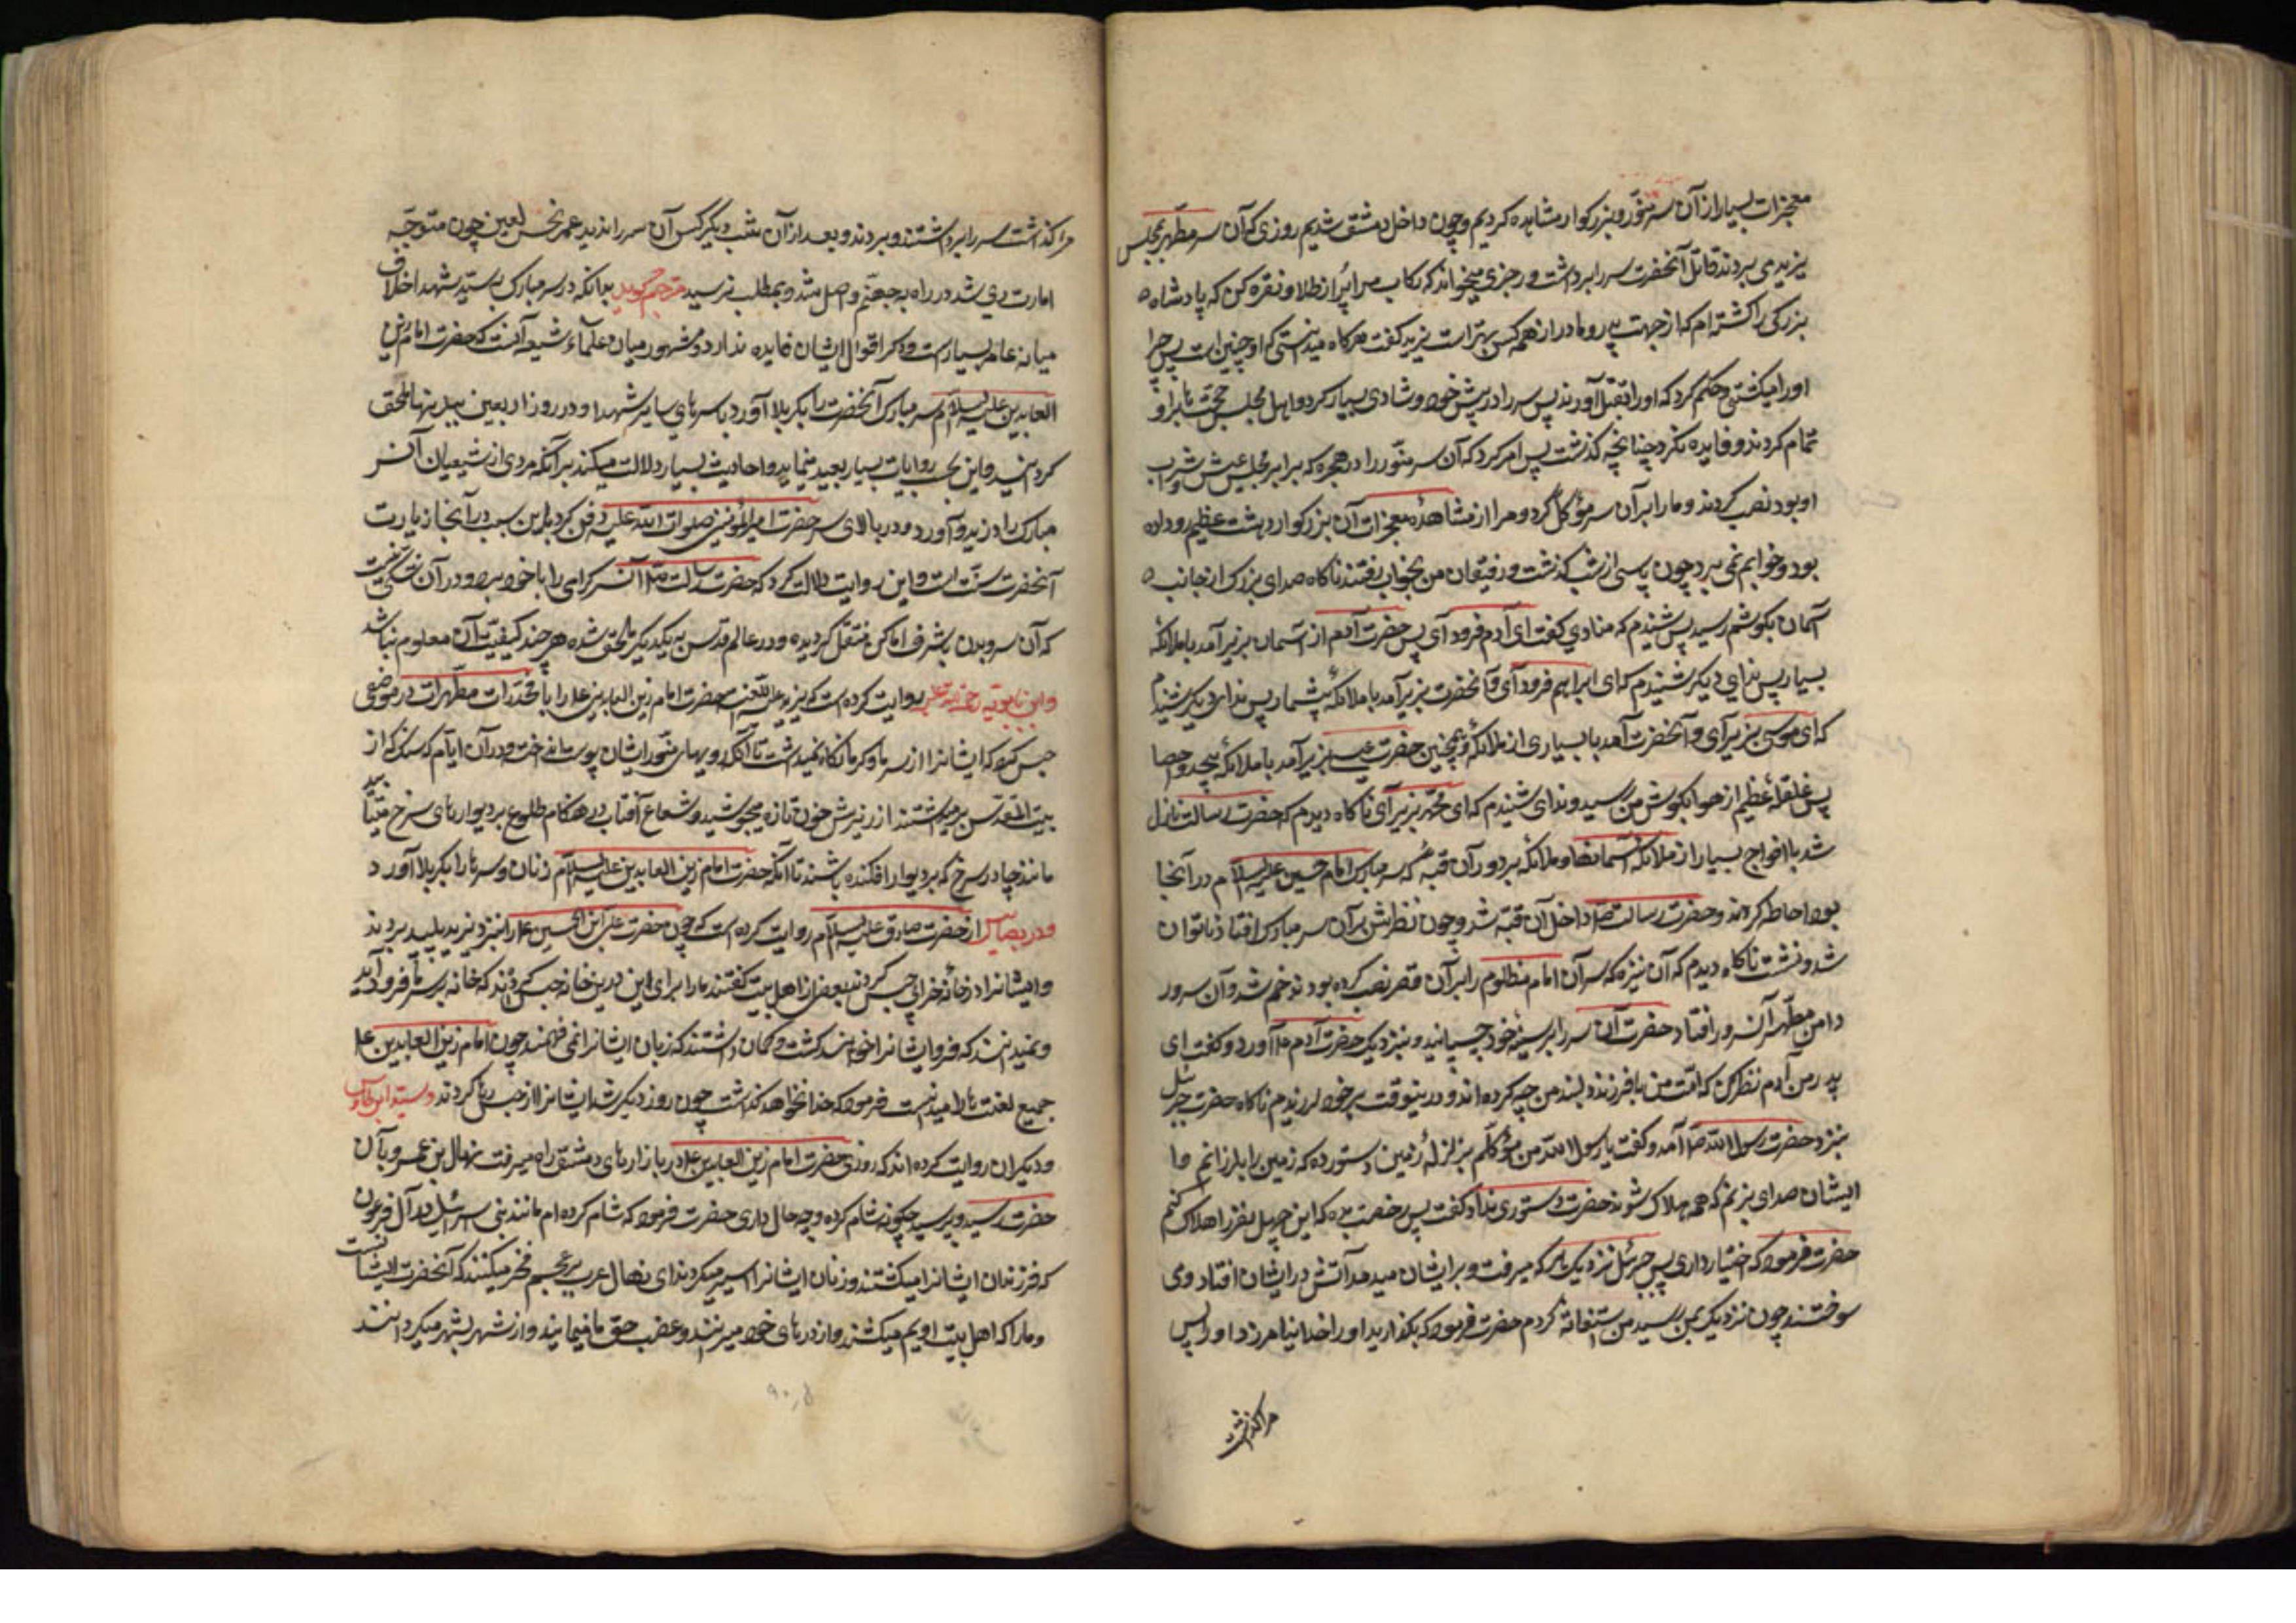 معجزات بسیار از آن سر منوّر و بزرکوار مشاهده کردیم و چون داخل دمشق شدیم روزی که آن سر مطهر بمجلس
یزید می بردند قاتل آنحضرت سر را برداشت و رجزی میخواند که رکاب مرا پر از طلا و نقره کن که پادشاه
بزرکی را کشته ام که از جهت پدر و مادر از همه کس بهتر است یزید کفت هرکاه میدانستی که او چنین است پس چرا
او را میکشتی و حکم کرد که او را بقتل آورند پس سر را در پیش خود و شادی بسیار کرد و اهل مجلس حجتها بر او
تمام کردند و فایده نکرد چنانچه کذشت پس امر کرد که آن سر منوّر را در حجره که برابر مجلس عیش و شراب
او بود نصب کردند و ما را بر آن سر مؤکل کرد و مرا از مشاهدهٔ معجزات آن بزرکوار دهشت عظیم رو داده
بود و خوابم نمی برد چون پاسی از شب کذشت و رفیقان من بخواب رفتند ناکاه صدای بزرک از جانب
آسمان بکوشم رسید پس شنیدم که منادی کفت ای آدم فرود آی پس حضرت آدم از آسمان بزیر آمد با ملائکهٔ
بسیار پس ندای دیکر شنیدم که ای ابراهیم فرود آی و آنحضرت بزیر آمد با ملائکهٔ بیشمار پس ندای دیکر شنیدم
که ای موسی بزیر آی و آنحضرت آمد با بسیاری از ملائکه و همچنین حضرت عیسی بزیر آمد با ملائکهٔ بیحد و احصا
پس غلغلهٔ عظیم از هوا بکوش من رسید و ندای شنیدم که ای محمّد بزیر آی ناکاه دیدم که حضرت رسالت نازل
شد با افواج بسیار از ملائکهٔ آسمانها و ملائکه بر دور آن قبه که سر مبارک امام حسین علیه السلام در آنجا
بود احاطه کردند و حضرت رسالت ص داخل آن قبّه شد و چون نظرش بر آن سر مبارک افتاد ناتوان
شد و نشست ناکاه دیدم که آن نیزه که سر آن امام مظلوم را بر آن نصب کرده بودند خم شد و آن سر در
دامن مطهر آن سرور افتاد حضرت آن سر را بر سینهٔ خود چسپانید و بنزدیک حضرت آدم ع آورد و کفت ای
پدر من آدم نظر کن که امّت من با فرزند دلبند من چه کرده اند و در ینوقت بر خود لرزیدم ناکاه حضرت جبرئیل
بنزد حضرت رسول الله ص آمد و کفت یا رسول الله من مؤکلم بزلزلهٔ زمین دستور ده که زمین را بلرزانم و بر
ایشان صدای بزنم که همه هلاک شوند حضرت دستوری نداد کفت پس رخصت بده که این چهل نفر را هلاک کنم
حضرت فرمود که اختیار داری پس جبرئیل نزدیک هر که میرفت و بر ایشان میدمد آتش در ایشان افتاد و می
سوختند چون نزدیک بمن رسید من استغاثه کردم حضرت فرمود که بکذارید او را خدا نیامرزد او را پس
مرا کذاشت
مرا کذاشت سر را برداشتند و بردند و بعد از آن شب دیکر کس آن سر را ندید عمر نحس لعین چون متوجّه
امارت ری شد در راه بجهنّم واصل شد و بمطلب نرسید مترجم کوید بدانکه در سر مبارک سیّد شهدا خلاف
میانه عامه بسیار است و ذکر اقوال ایشان فایده ندارد و مشهور میان علمآء شیعه آنست که حضرت امام زین
العابدین علیه السلام سر مبارک آنحضرت را بکربلا آورد با سرهای سایر شهدا و در روز اربعین ببدنها ملحق
کردانید و این بحسب روایات بسیار بعید مینماید و احادیث بسیار دلالت میکند بر آنکه مردی از شیعیان آن سر
مبارک را دزدید و آورد و در بالای سر حضرت امیرالمؤمنین صلوات الله علیه دفن کرد باین سبب در آنجا زیارت
آنحضرت سنّت است و این روایت دلالت کرد که حضرت رسالت ص آن سر کرامی را با خود برد و در آن شکی نیست
که آن سر و بدن باشرف اماکن منتقل کردیده و در عالم قدس به یکدیکر ملحق شده هر چند کیفیّت آن معلوم نباشد
و ابن بابویه رحمة الله علیه روایت کرده است که یزید علیه اللعنه حضرت امام زین العابدین ع را با مخدرات مطهرات در موضعی
حبس کرد که ایشانرا از سرما و کرما نکاه نمیداشت تا آنکه رویهای منوّر ایشان پوست انداخت و در آن ایّام که سنک از
بیت المقدس برمیداشتند از زیرش خون تازه میجوشید و شعاع آفتاب در هنکام طلوع بر دیوارهای سرخ میتابید
مانند چادر سرخ که بر دیوار افکنده باشند تا آنکه حضرت امام زین العابدین علیه السلام زنان و سرها را بکربلا آورد
و در بصایر از حضرت صادق علیه السلام روایت کرده است که چون حضرت علی ابن الحسین ع را بنزد یزید پلید بردند
و ایشانرا در خانهٔ خرابی حبس کردند بعضی از اهل بیت کفتند ما را برای این درین خانه حبس کردند که خانه بر سر ما فرود آید
و نمیدانند که فردا ایشانرا خواهند کشت و کمان داشتند که زبان ایشانرا نمی فهمند چون امام زین العابدین ع
جمیع لغت ها را میدانست فرمود که خدا نخواهد کذاشت چون روز دیکر شد ایشانرا از حبس رها کردند و سید ابن طاوس
و دیکران روایت کرده اند که روزی حضرت امام زین العابدین ع در بازارهای دمشق راه میرفت منهال بن عمرو بآن
حضرت رسید و پرسید چکونه شام کرده و چه حال داری حضرت فرمود که شام کرده ام مانند بنی اسرائیل در آل فرعون
که فرزندان ایشانرا میکشتند و زنان ایشانرا اسیر میکردند ای منهال عرب بر عجم فخر میکنند که آنحضرت از ایشانست
و ما را که اهل بیت اویم میکشند و از درهای خود میرانند و غصب حق ما مینمایند و از شهر بشهر میکردانند